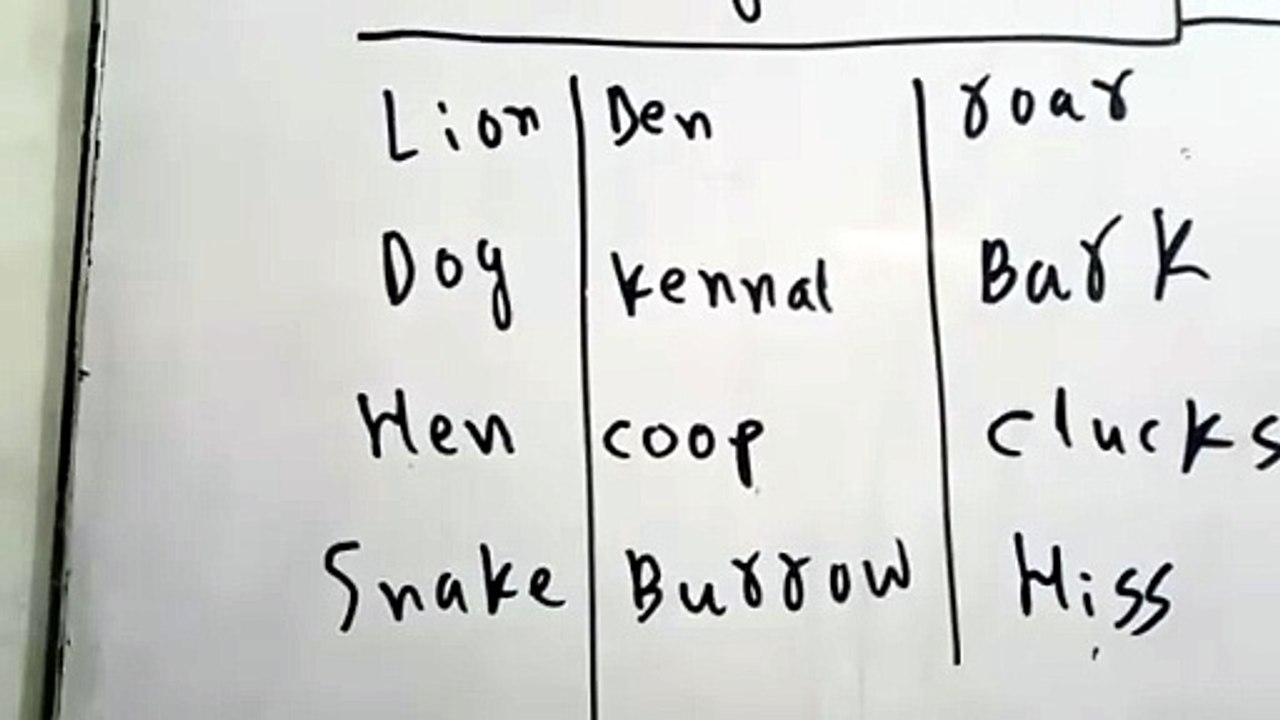 Lion Den roar
Dog kennal Bark
Hen coop clucks
Snake Burrow Hiss